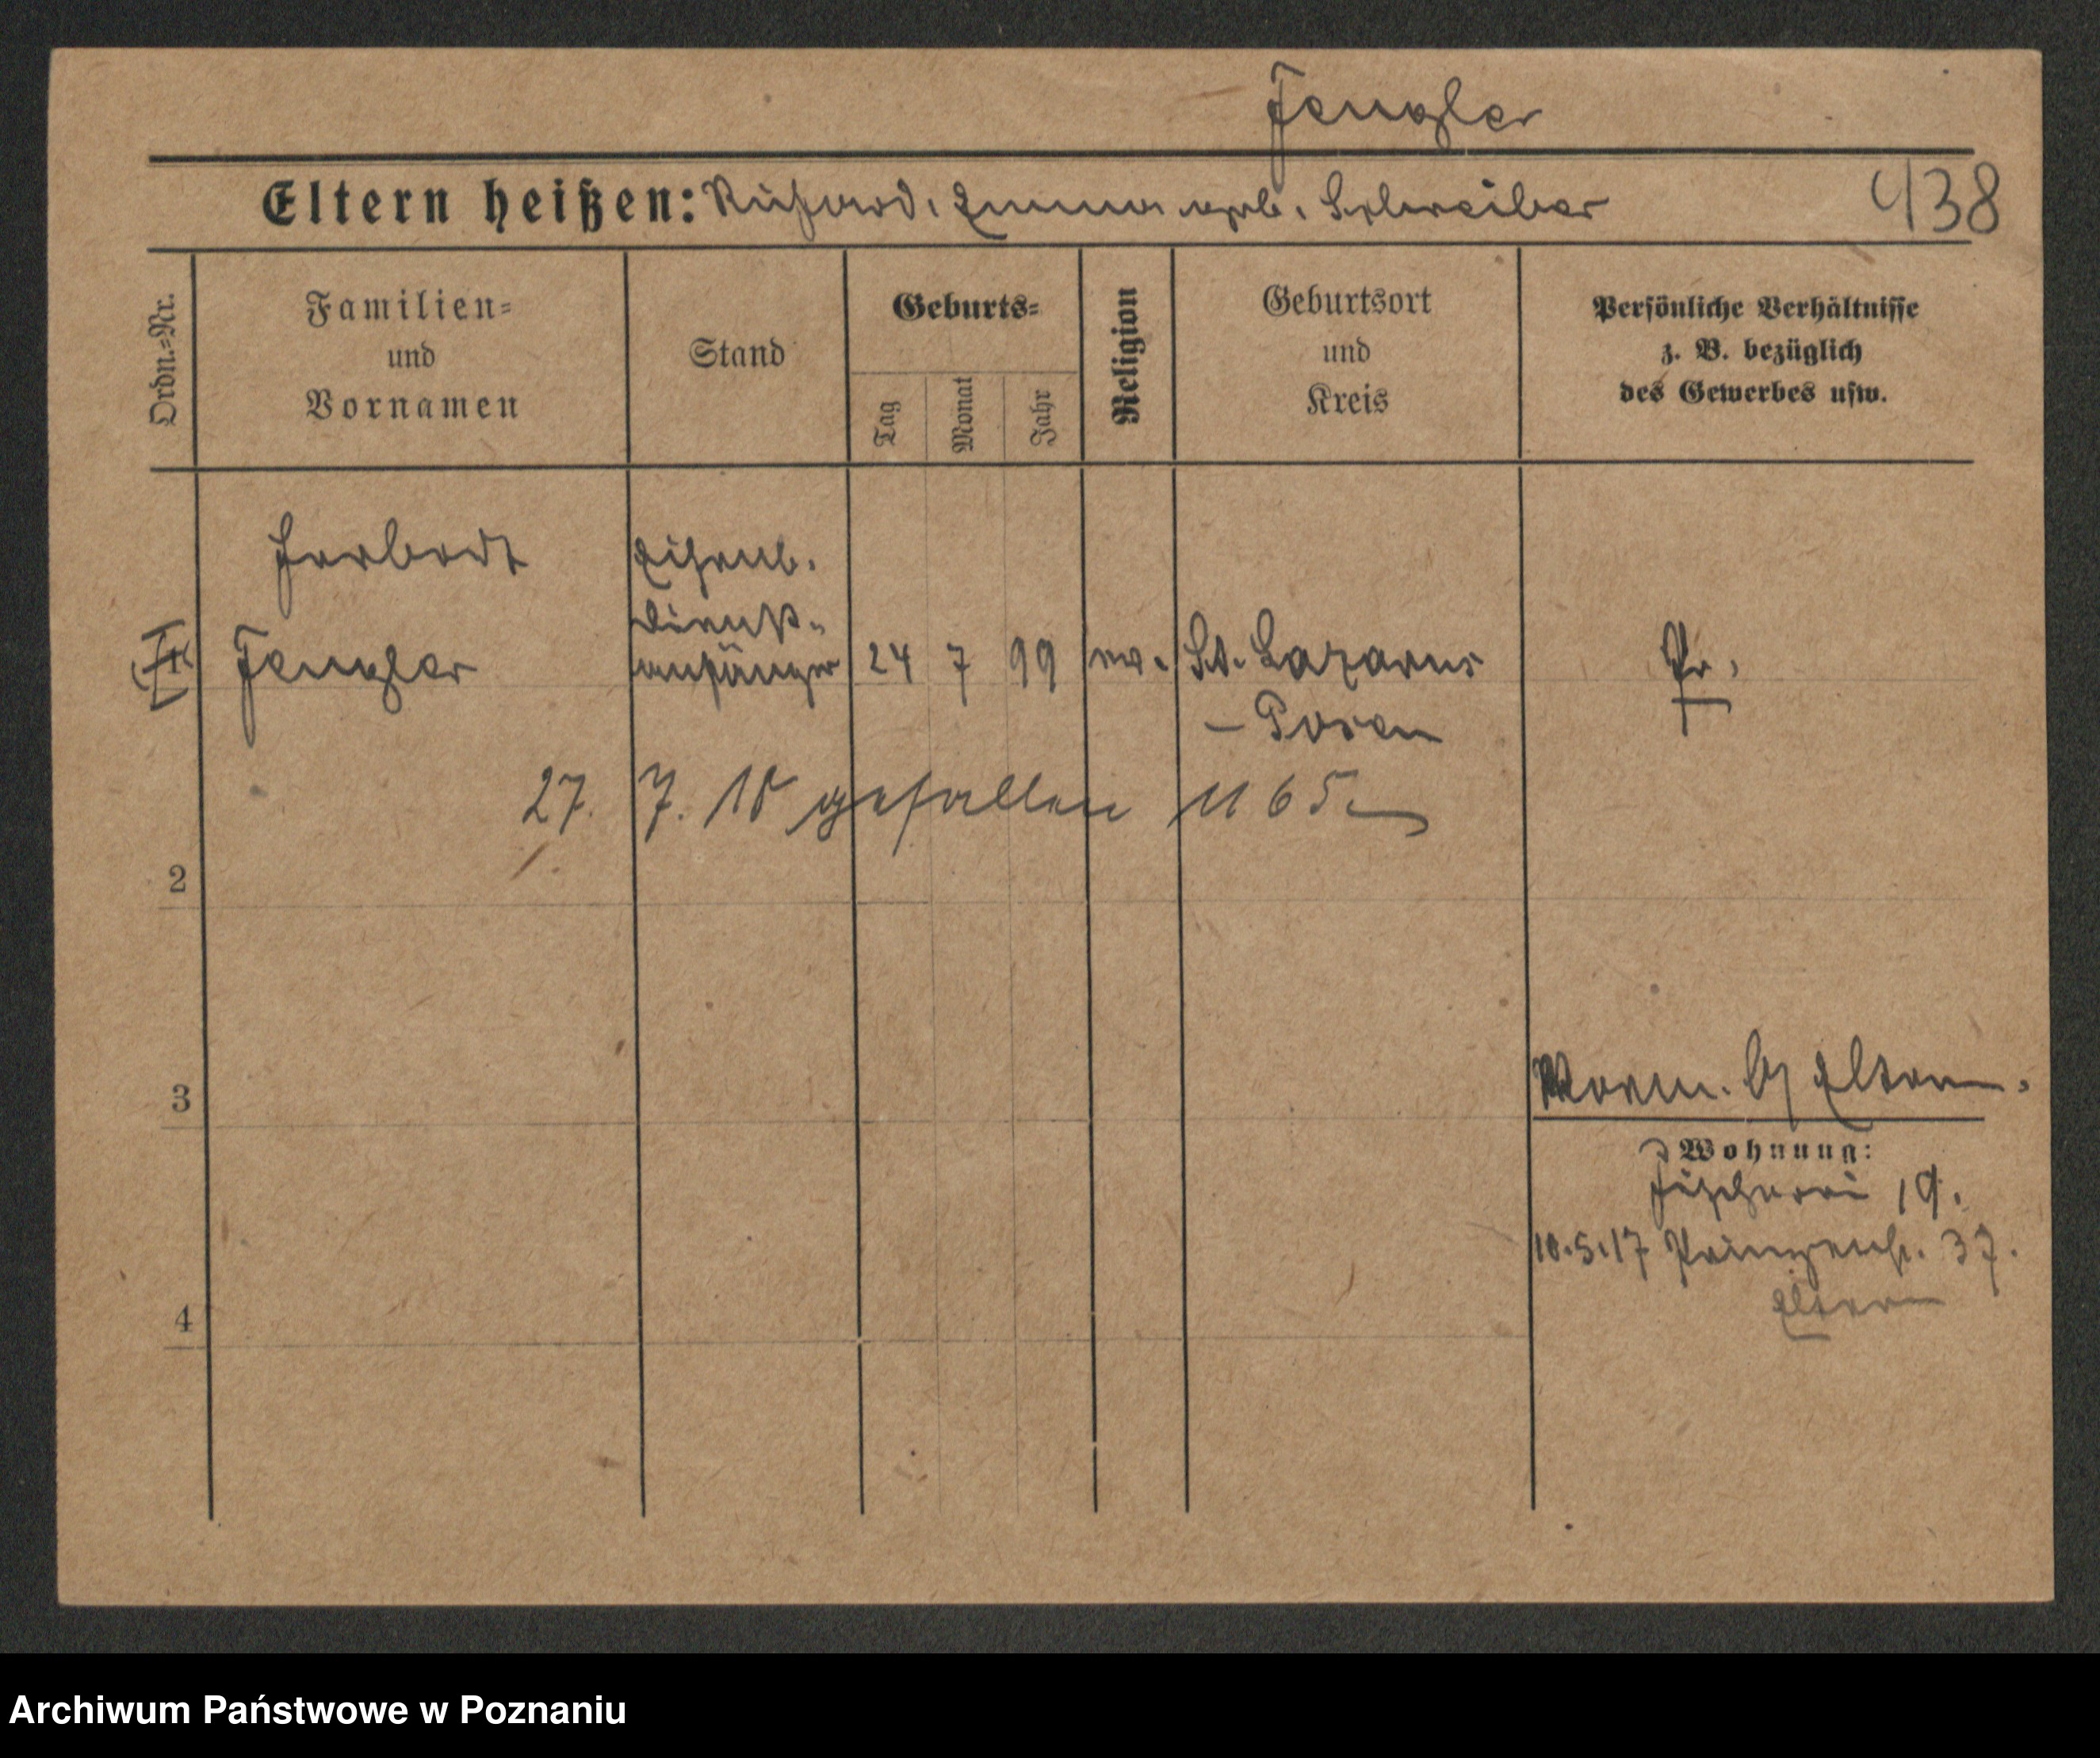 Fengler
Eltern heißen: Richard, Emma geb. Schreiber 438
Ordn.-Nr.
Familien-
und
Vornamen
Stand
Geburts-
Tag
Monat
Jahr
Religion
Geburtsort
und
Kreis
Persönliche Verhältnisse
z. B. bezüglich
des Gewerbes usw.
Herbert
Fengler
Eisenb.
dienst-
anfänger
24 7 99
ev.
St. Lazarus
- Posen
Pr.
27. 7. 18 gefallen 1165
2
3
Eltern.
Wohnung:
Fischerei 19.
10.5.17 Prinzenstr. 37.
Eltern
4
Archiwum Państwowe w Poznaniu